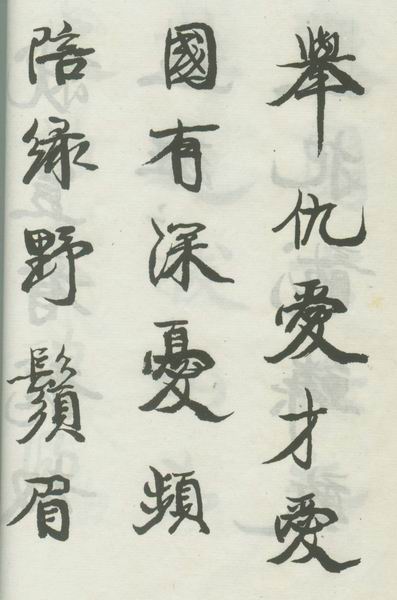 舉仇愛才愛
國有深憂頻
陪緑野鬚眉